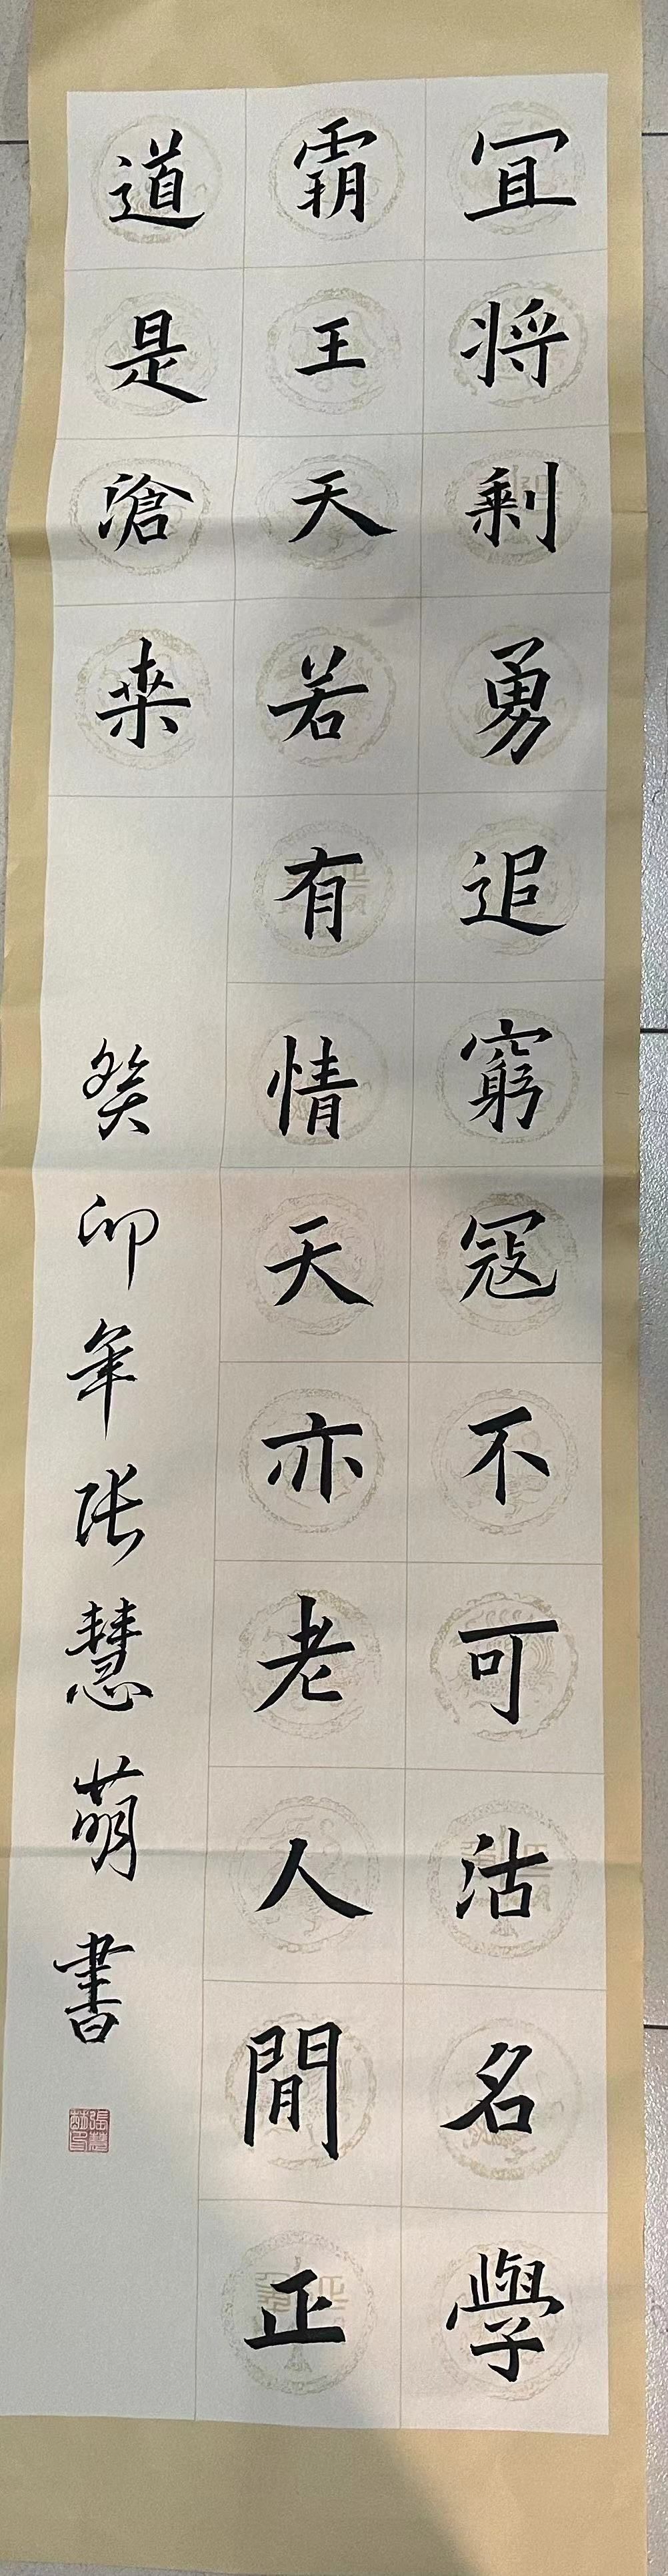 宜将剩勇追窮寇不可沽名學
霸王天若有情天亦老人間正
道是滄桒
癸卯年张慧萌書